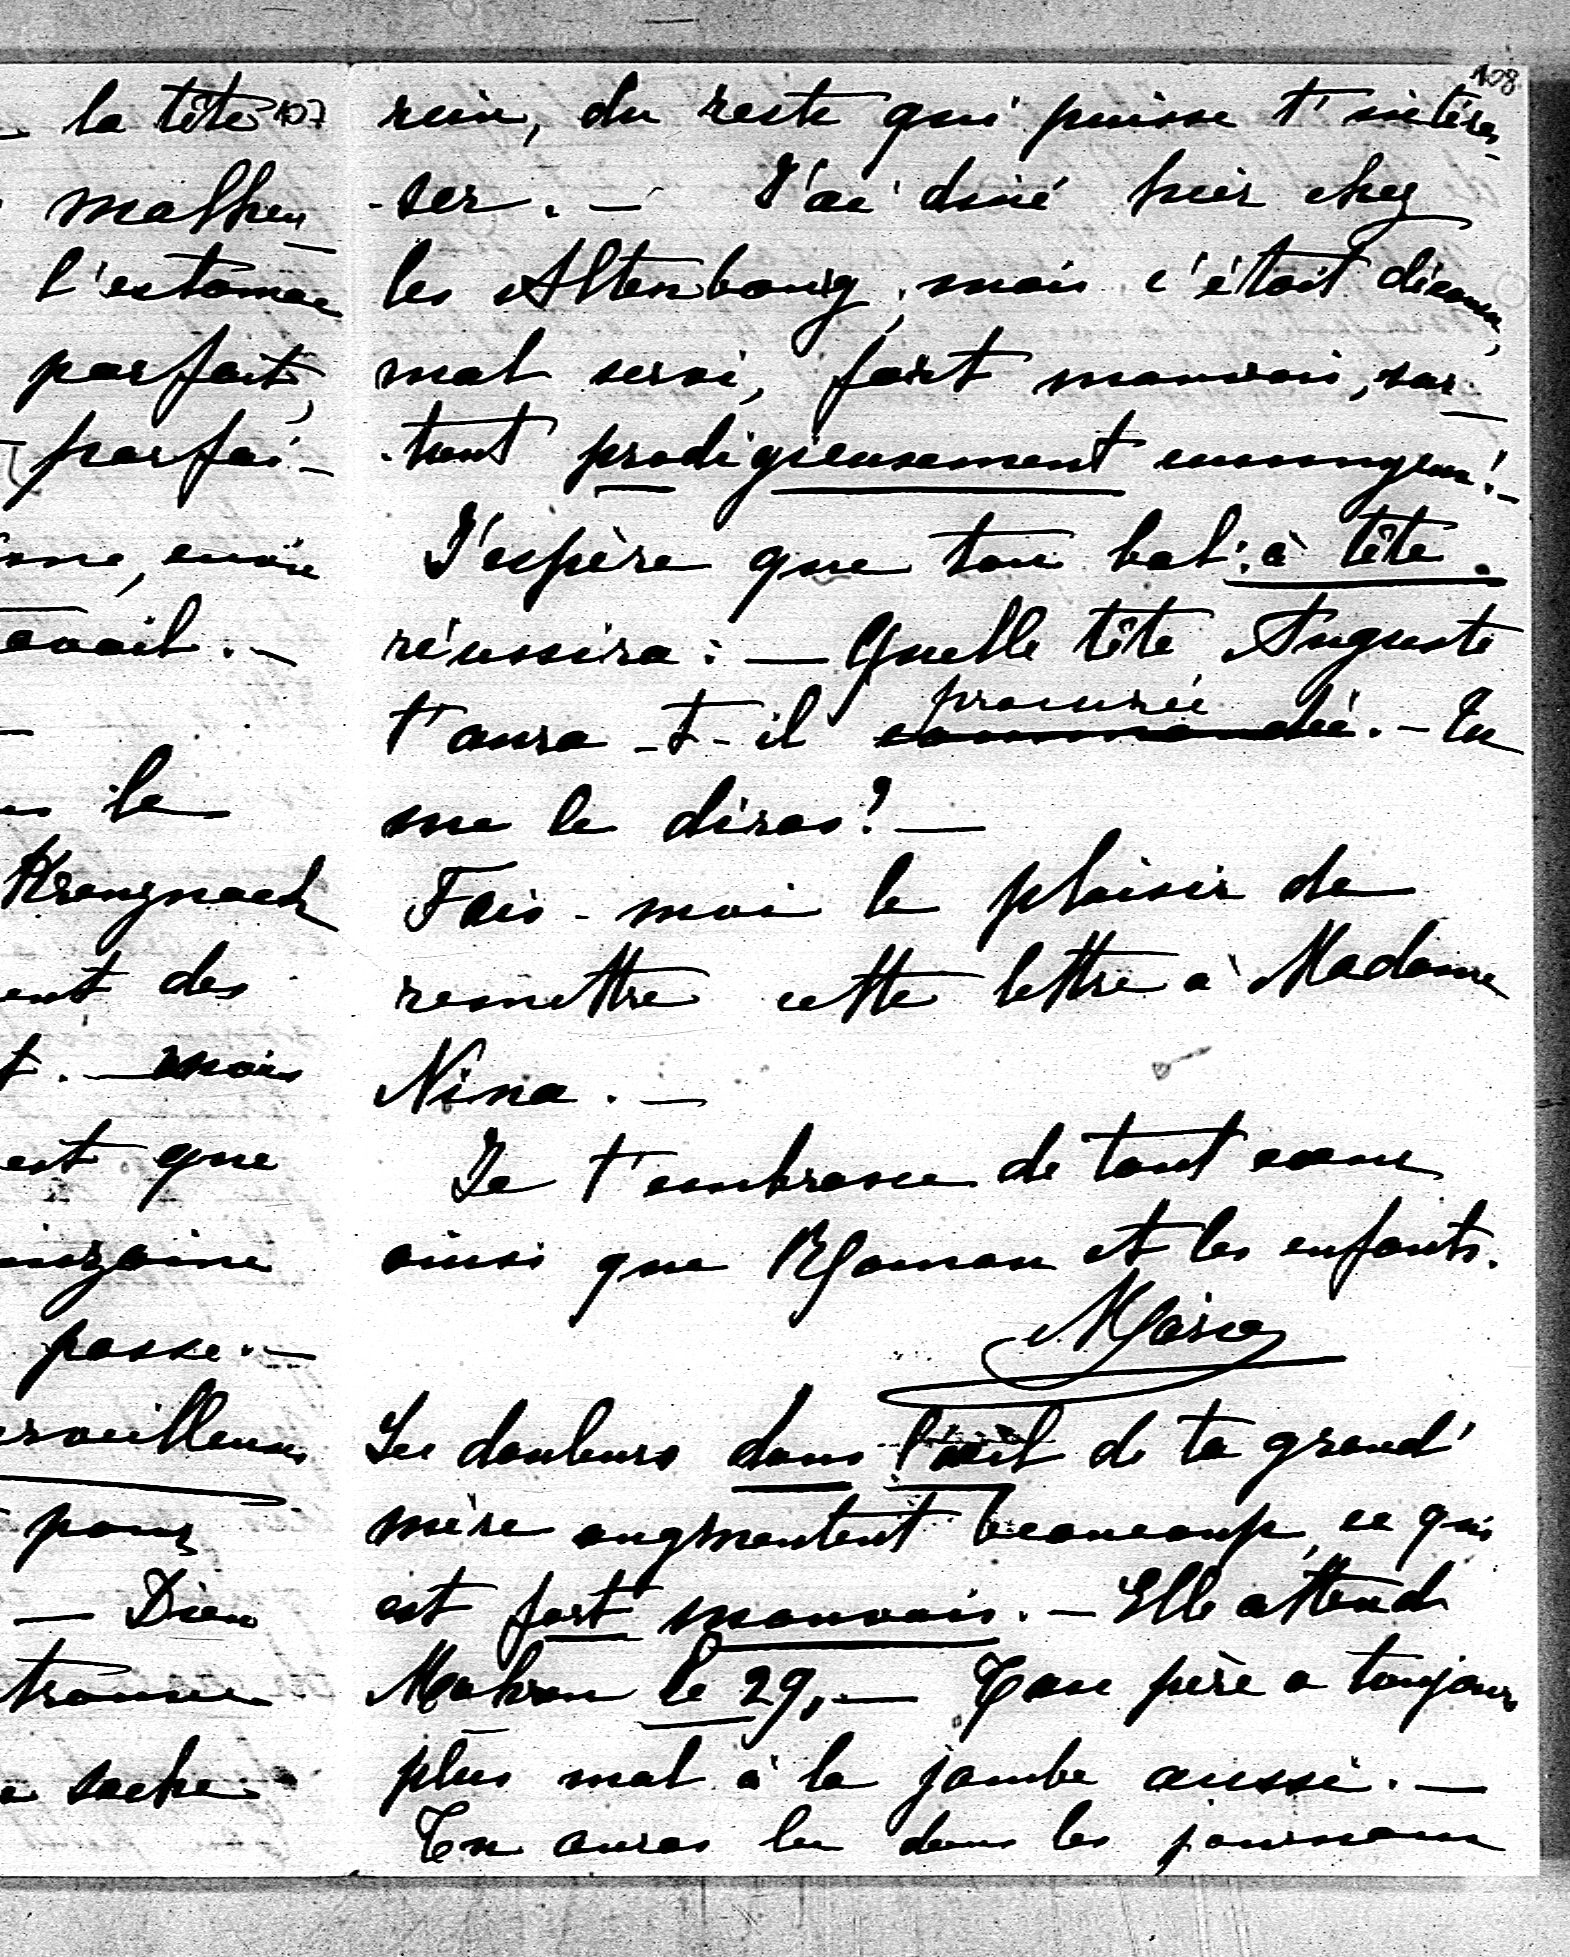 la tête 107
malheu
l'estomac
parfait,
parfai-
envie
avail. -
le
Kreuznach
ent des
t. - mais
est que
uinzaine
passe. -
erveilleux
pour
- Dieu
trouve
sache
108
rien, du reste qui puisse t'intéres-
-ser. - J'ai diné hier chez
les Altenbourg, mais c'était décousu,
mal servi, fort mauvais, sur-
-tout prodigieusement ennuyeux! -
J'espère que ton bal: à tête.
réussira: - Quelle tête Auguste
procurée
t'aura-t-il commandé. - Tu
me le diras? -
Fais-moi le plaisir de
remettre cette lettre à Madame
Nina. -
Je t'embrasse de tout coeur
ainsi que Maman et les enfants.
Marie
Les douleurs dans l'oeil de ta grand'
mère augmentent beaucoup, ce qui
est fort mauvais. - Elle attend
le 29, - Ton père a toujours
plus mal à la jambe aussi. -
Tu auras lu dans les journaux